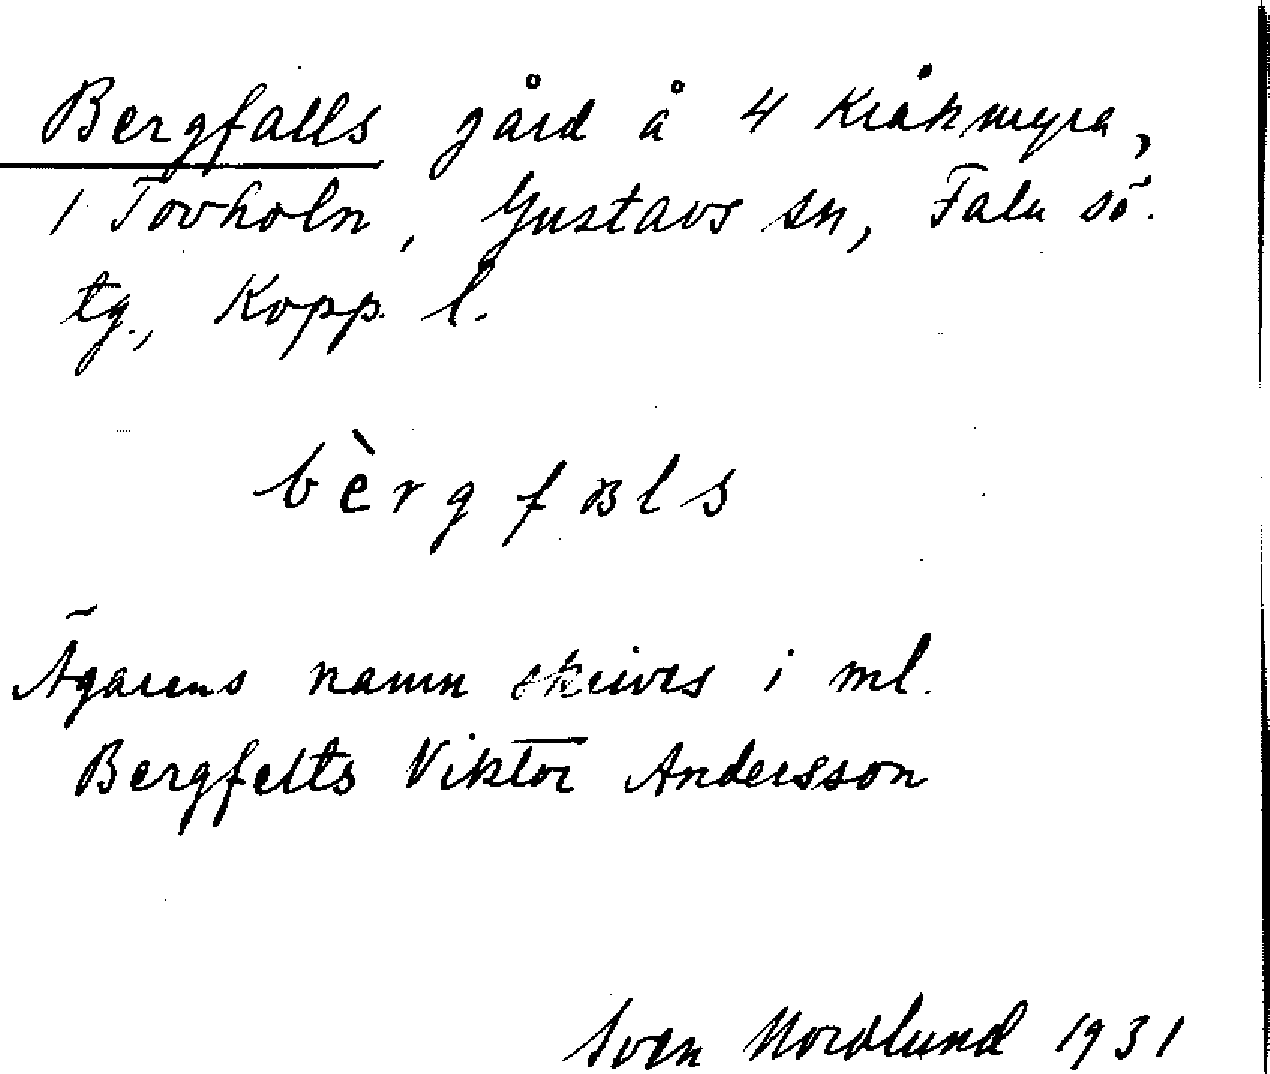 Bergfalls gård å 4 Kråkmyra,
1 Tovholn, Gustavs sn, Falu sö.
tg., Kopp. l.
bèrgfals
Ägarens namn skrives i ml.
Bergfelts Viktor Andersson
Sven Nordlund 1931